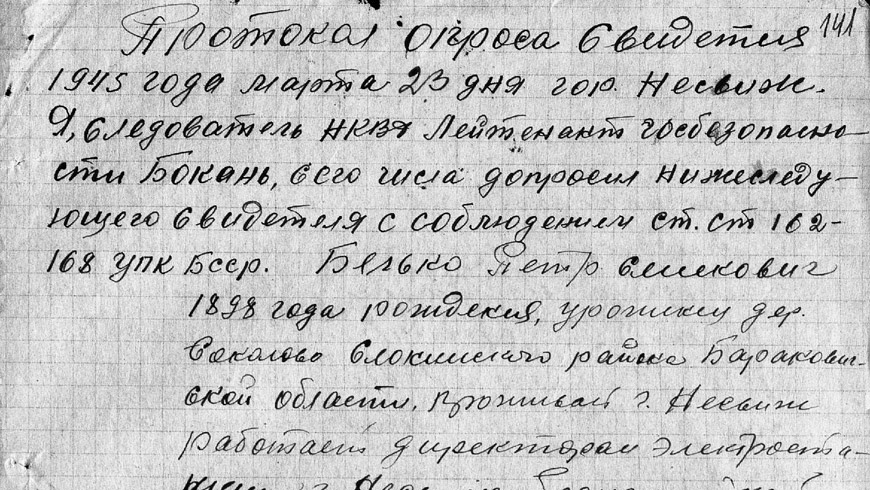 141
Протокол опроса Свидетеля
1945 года марта 23 дня гор. Несвиж.
Я, Следователь НКВД Лейтенант Госбезопасно-
сти Бокань, сего числа допросил нижеследу-
ющего Свидетеля с соблюдением ст. ст 162-
168 УПК Бсср. Белько Петр
1898 года рождения, урожинец дер.
Соколово Слонимского района Баранович-
ской области, проживает г. Несвиж
работает директором электроста-